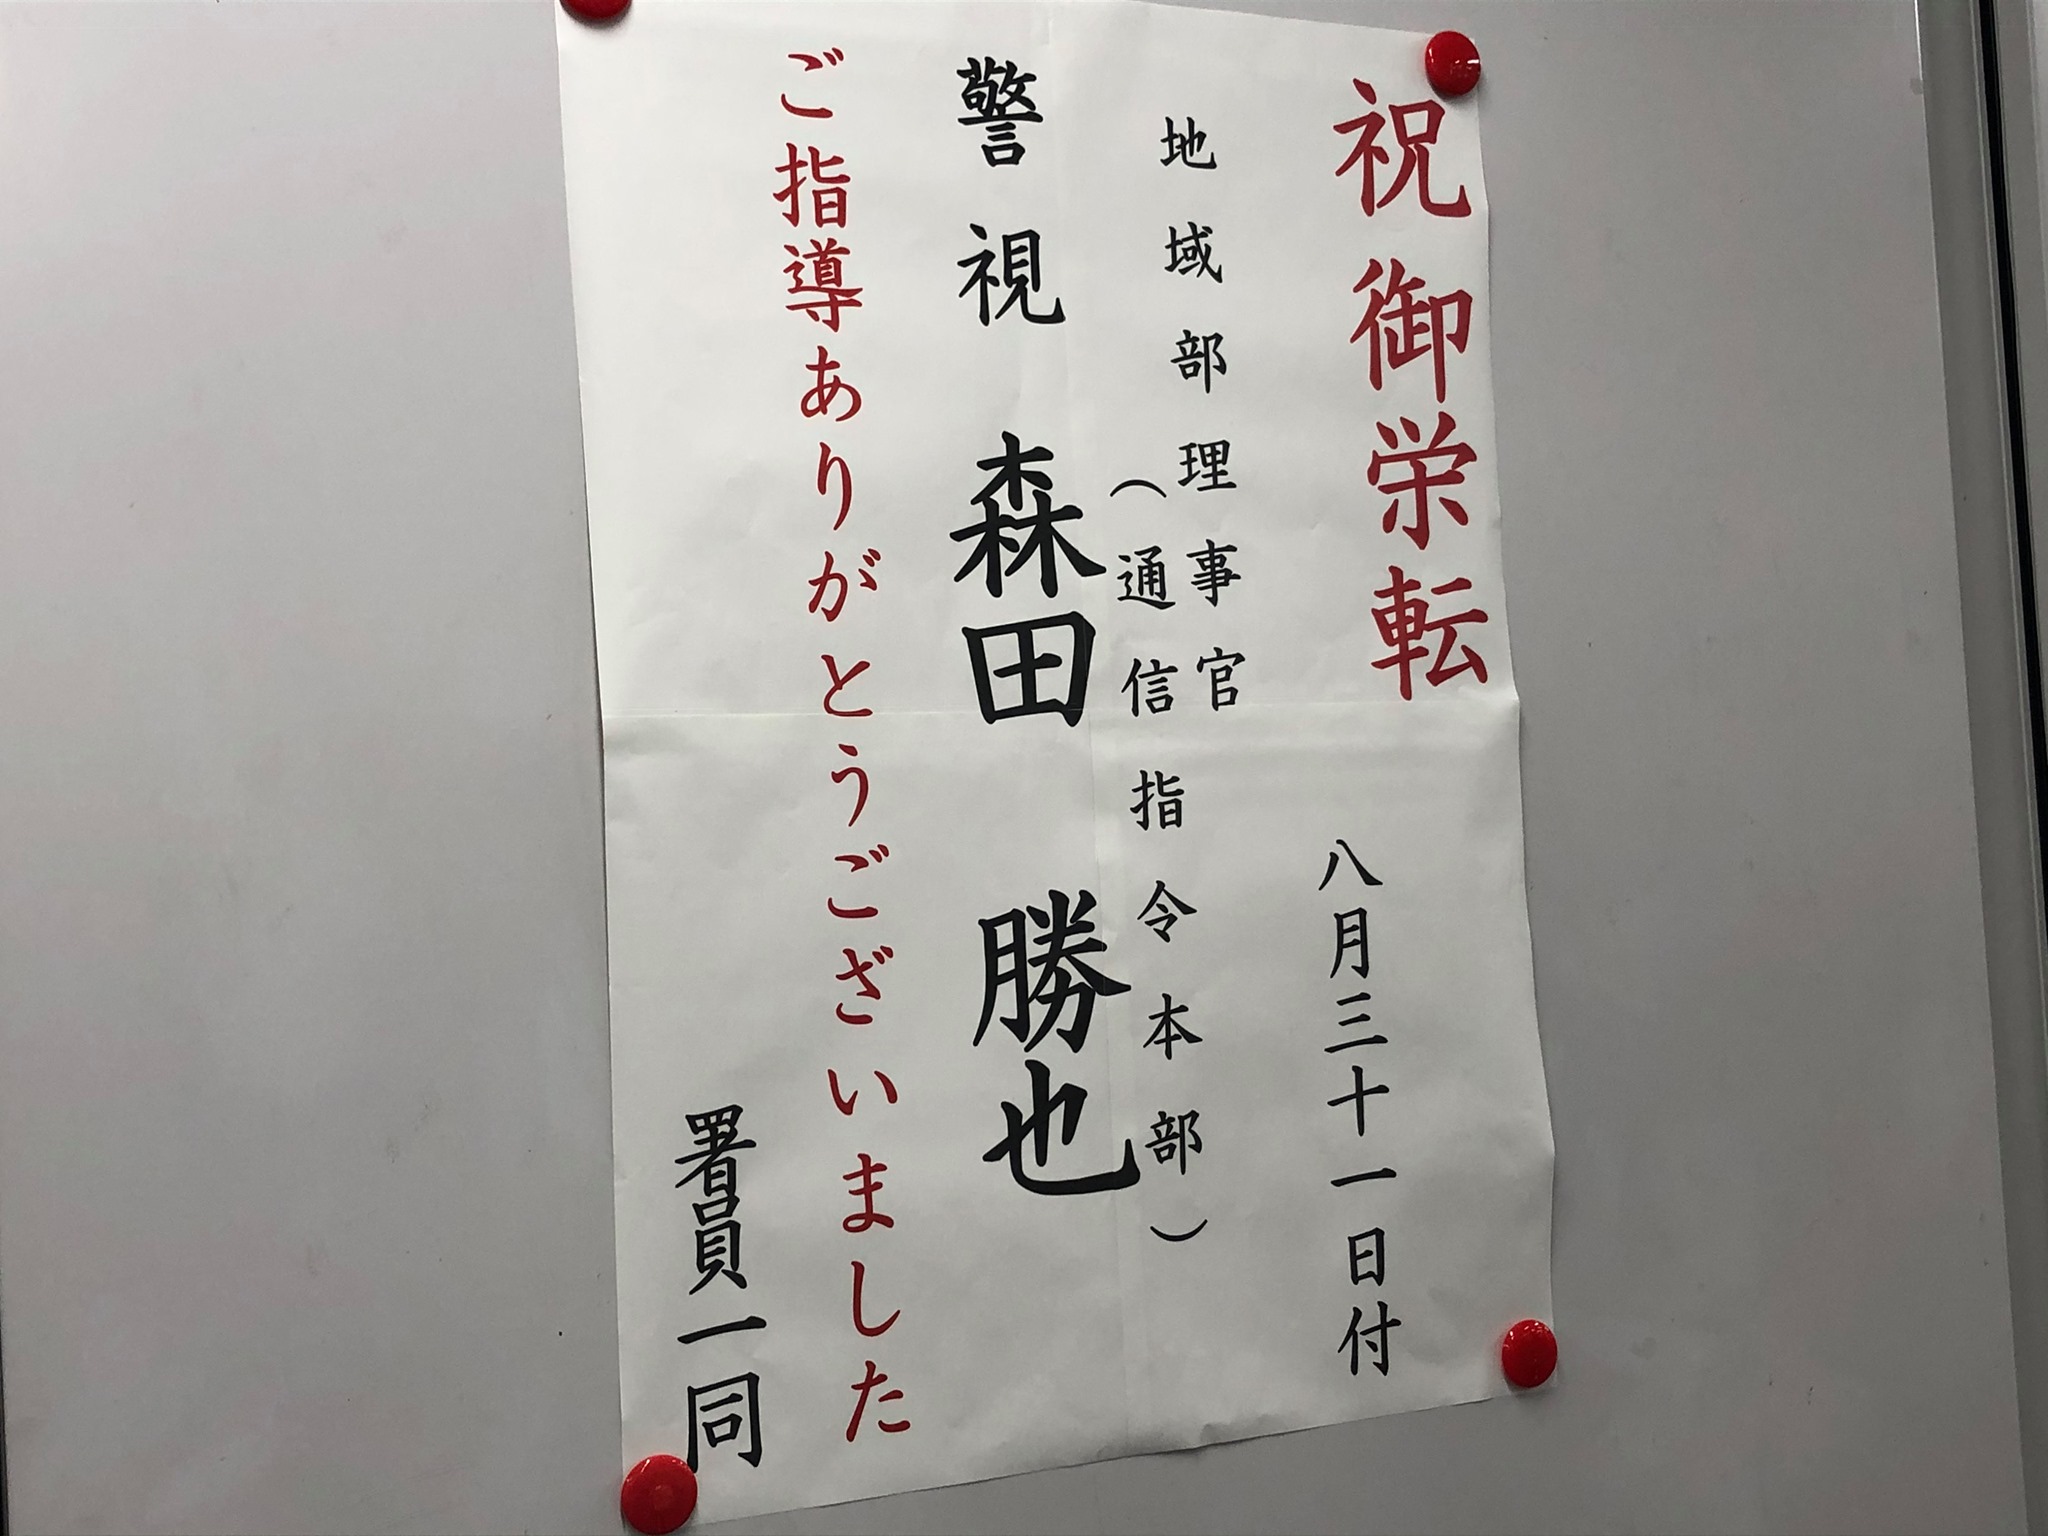 祝御栄転
八月三十一日付
地域部理事官
(通信指令本部)
警視 森田 勝也
ご指導ありがとうございました
署員一同